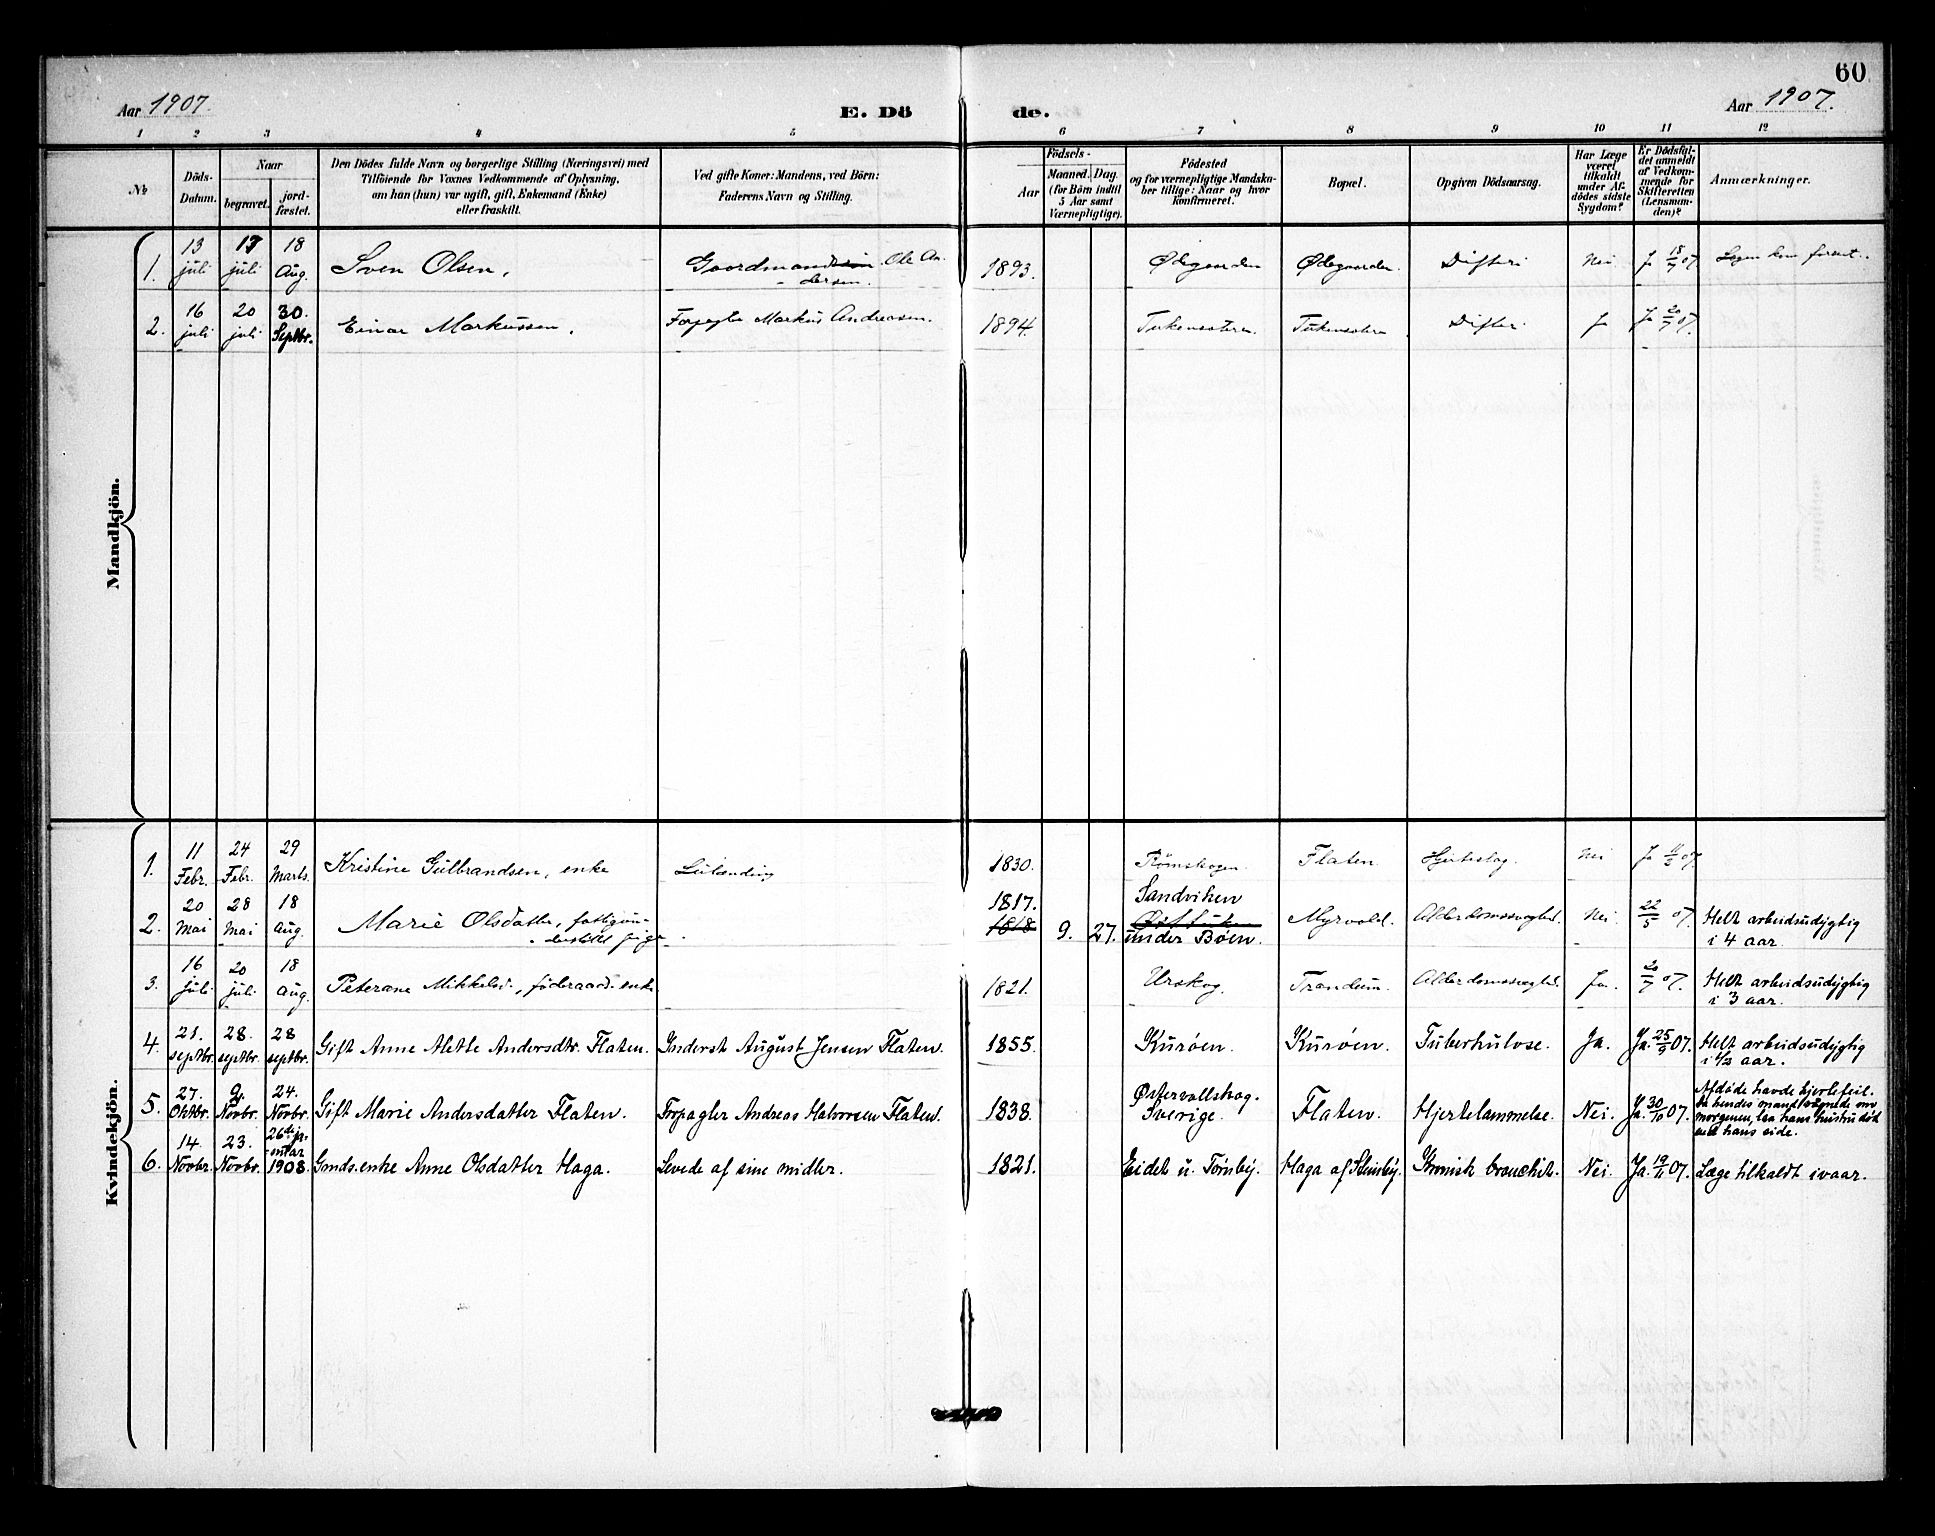 60
Aar 1907.
E. Dö de.
Aar 1907.
1 2 3 4 5 6 7 8 9 10 11 12
№
Döds-
Datum.
Naar
begravet.
jord-
fæstet.
Den Dödes fulde Navn og borgerlige Stilling (Næringsvei) med
Tilföiende for Voxnes Vedkommende af Oplysning,
om han (hun) var ugift, gift, Enkemand (Enke)
eller fraskilt.
Ved gifte Koner: Mandens, ved Börn:
Faderens Navn og Stilling.
Födsels-
Aar
Maaned. Dag.
(for Börn indtil
5 Aar samt
Værnepligtige).
Födested
og for værnepligtige Mandska-
ber tillige: Naar og hvor
konfirmeret.
Bopæl.
Opgiven Dödsaarsag.
Har Læge
været
tilkaldt
under Af-
dödes sidste
Sygdom?
Er Dödsfal-
det anmeldt
af Vedkom-
mende for
Skifteretten
(Lensman-
den)?
Anmærkninger.
Mandkjön.
1. 13 juli 17 juli 18 Aug. Sven Olsen, Gaardmand Ole An-
dersen. 1893. Ødegaarden Ødegaarden Difteri Nei Ja 18/7 07
2. 16 juli 20 juli 30. Septbr. Einar Markussen. Forpagter Markus Andreasen. 1894. Difteri Ja Ja 20/7 07.
Kvindekjön.
1. 11 Febr. 24 Febr. 29 Marts. Kristine Gulbrandsen, enke 1830. Rømskogen Flaten. Hjerteslag. Nei Ja 11/2 07
2. 20 Mai 28 Mai 18 Aug. Marie Olsdatter, 1817.
1818 9. 27. Sandviken
under Bøen. Myrvold. Alderdomssvaghed. Nei 22/5 07. Helt arbeidsudygtig
i 4 aar.
3. 16 juli 20 juli 18 Aug. Peterane Mikkelsd., føderaads enke 1821. Urskog. Trandum. Alderdomssvaghed. Ja. 20/7 07. Helt arbeidsudygtig
i 3 aar.
4. 21. septbr. 28. septbr. 28 septbr. Gift Anne Alette Andersdtr. Flaten. Inderst August Jensen Flaten. 1855. Kurøen. Kurøen. Tuberkulose. Ja. Ja. 25/9 07. Helt arbeidsudygtig
i 1/2 aar.
5. 27. Oktbr. 9. Novbr. 24. Novbr. Gift Marie Andersdatter Flaten. Forpagter Andreas Halvorsen Flaten. 1838. Østervallskog.
Sverige. Flaten. Hjertelammelse. Nei. Ja. 30/10 07. Afdøde havde hjertefeil.
Da hendes mand vaagnede om
morgenen, laa hans hustru død
ved hans side.
6. 14. Novbr. 23. Novbr. 26de januar 1908. Gmds.enke Anne Olsdatter Haga. Levede af sine midler. 1821. Eidet u. Tørnby. Haga af Stenby. Kronisk bronchit. Nei. Ja. 19/11 07. Læge tilkaldt ivaar.